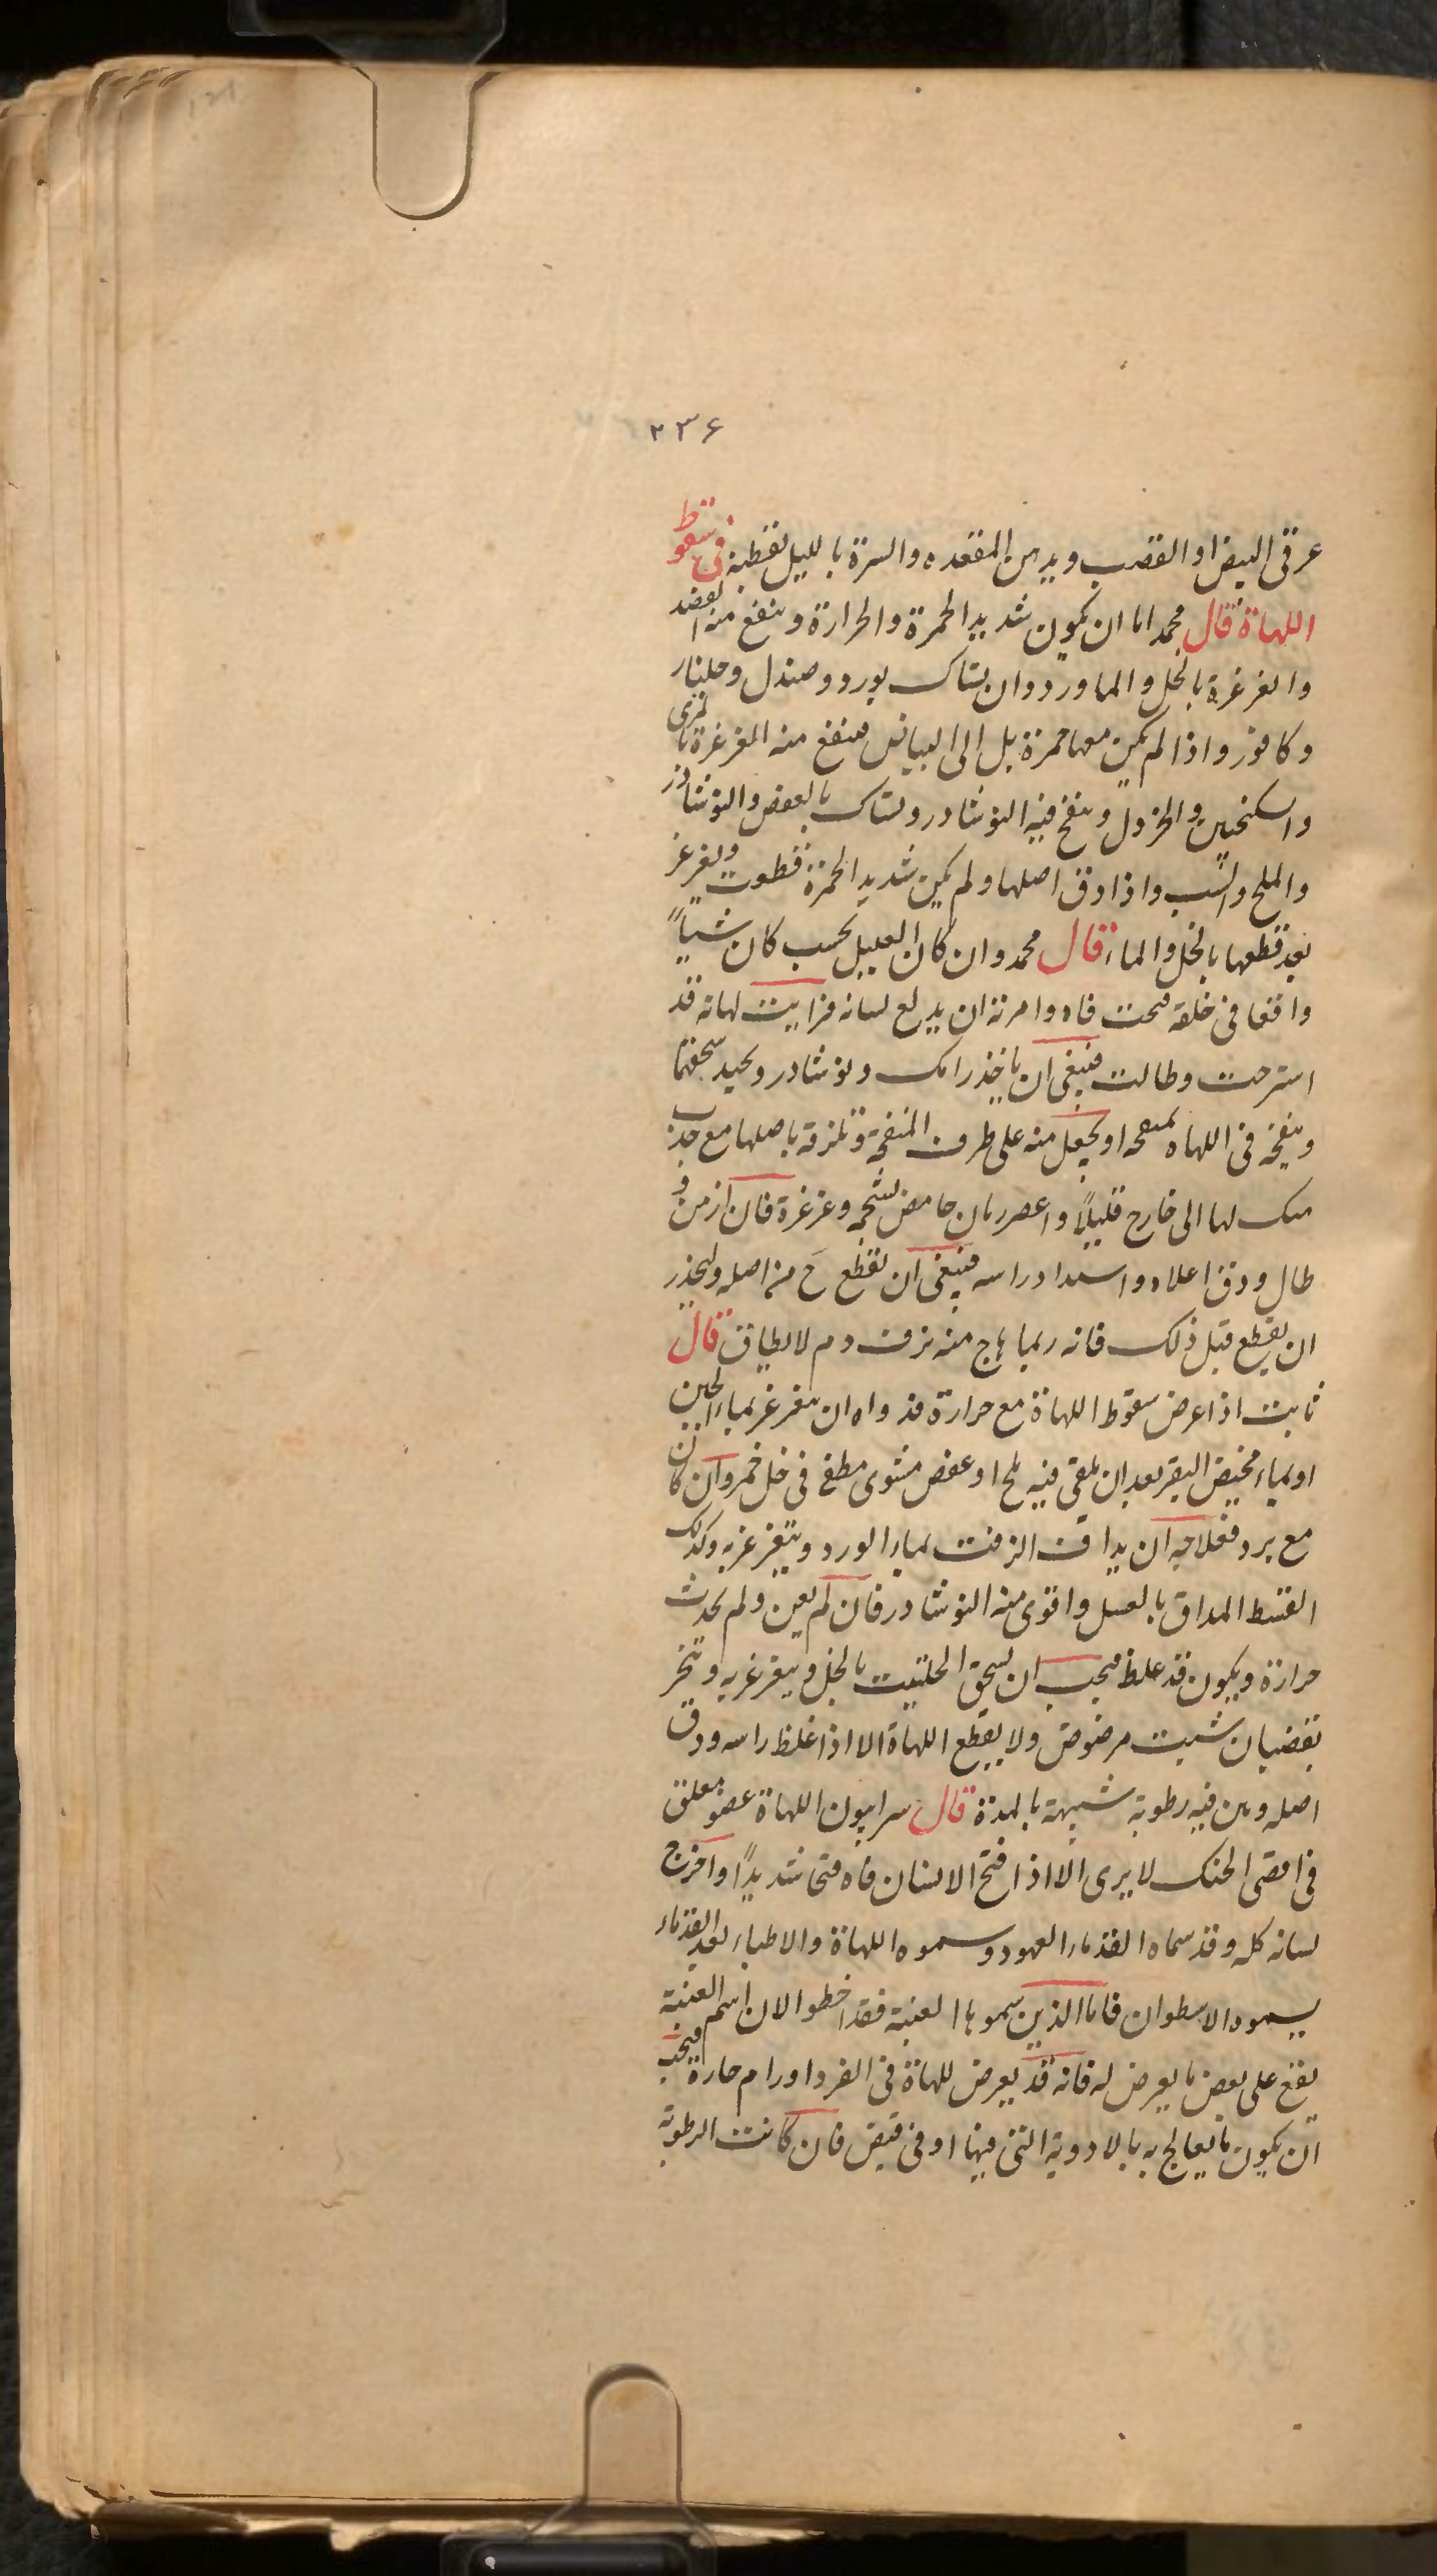 ٢٣۶
عرقى البيض او القضب ويدهن المقعده والسرة بالليل بقطنة فى سقوط
اللهاة قال محمد اما ان يكون شديد الحمرة والحرارة وينفع منه الفصد
والغرغرة بالخل والماورد وان يشاك بورد وصندل وجلنار
وكافور واذا لم يكن معها حمرة بل الى البياض فينفع منه الغرغرة بالمرى
والسكنجبين والخردل وينفخ فيه النوشادر ويشاك بالعفص والنوشادر
والملح والشب واذا دق اصلها ولم يكن شديد الحمرة قطعت ويغرغر
بعد قطعها بالخل والماء قال محمد وان كان العليل يحسب كان شياً
واقفا فى حلقه فتحت فاه وامرته ان يدلع لسانه فرايت لهاته قد
استرخت وطالت فينبغى ان ياخذ رامك ونوشادر ويجيد سحقهما
وينفخه فى اللهاه بمنفخه او يجعل منه على طرف المنفخة وتلزقه باصلها مع جذب
منك لها الى خارج قليلاً واعصر رمان حامض بشحمه وغرغرة فان ازمن و
طال ودق اعلاه واستدار راسه فينبغى ان يقطع ح من اصله وليحذر
ان يقطع قبل ذلك فانه ربما هاج منه نزف دم لا يطاق قال
ثابت اذا عرض سقوط اللهاة مع حرارة فدواه ان يتغرغر بماء الجبن
او بماء مخيض البقر بعد ان يلقى فيه ملح او عفص مشوى مطفى فى خل خمر وان كان
مع برد فعلاجه ان يداف الزفت بماء الورد ويتغرغر به وكذلك
القسط المداق بالعسل واقوى منه النوشادر فان لم يعن ولم يحدث
حرارة ويكون قد غلظ فيجب ان يسحق الحلتيت بالخل ويتغرغر به وتبخر
بقضبان شبت مرضوض ولا يقطع اللهاة الا اذا غلظ راسه ودق
اصله وبين فيه رطوبة شبيهة بالمدة قال سرابيون اللهاة عضو معلق
فى اقصى الحنك لا يرى الا اذا فتح الانسان فاه فتحا شديداً واخرج
لسانه كله وقد سماه القدماء العمود وسموه اللهاة والاطباء بعد القدماء
يسموه الاسطوان فاما الذين سموها العنبة فقد اخطوا لان اسم العنبة
يقع على بعض ما يعرض له فانه قد يعرض للهاة فى الفرد اورام حارة فيجب
ان يكون ما يعالج به بالادوية التى فيها اوفى قبض فان كانت الرطوبة